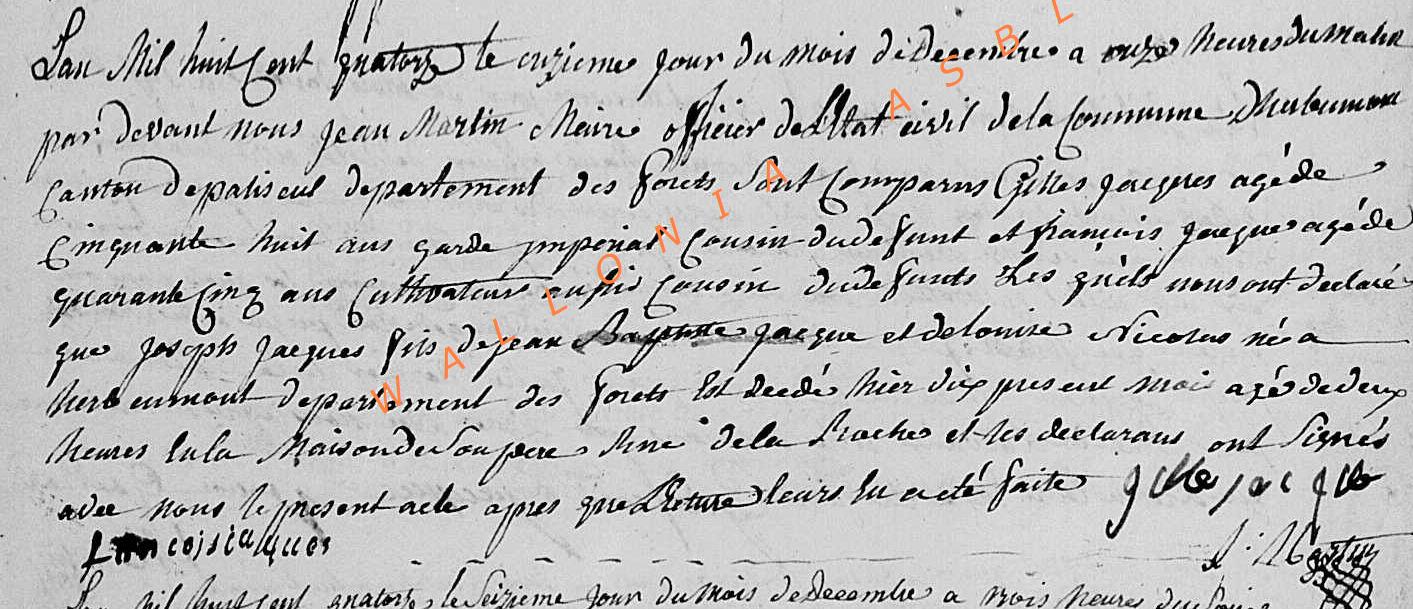 L'an Mil huit Cent quatorze le onzieme jour du mois de Decembre a onze heures du matin
par devant nous jean Martin Maire officier de L'Etat civil de la Commune d'herbeumont
Canton de paliseul departement des forets sont Comparus Gilles jacques agé de
Cinquante huit ans garde imperial Cousin du defunt et françois jacques agé de
quarante Cinq ans Cultivateur aussi Cousin du defunts Les quels nous ont declaré
que joseph jacques fils de jean Baptiste jacque et de louise Nicolas né a
herbeumont departement des forets Est decedé hier dix present mois agé de deux
heures En la Maison de Son pere Rue de la Roche et les declarans ont Signés
avec nous le present acte apres que Lecture leurs En a eté faite gilles jacque
francois jacques J: Martin
L'an Mil huit Cent quatorze le Seizieme jour du mois de Decembre a trois heures du soire
WALLONIA ASBL